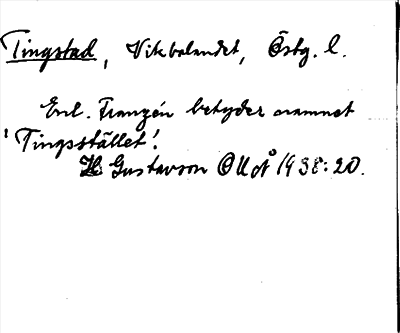 Tingstad, Vikbolandet, Östg. l.
Enl. Franzén betyder namnet
'Tingsstället'.
H Gustavson OUÅ 1938:20.